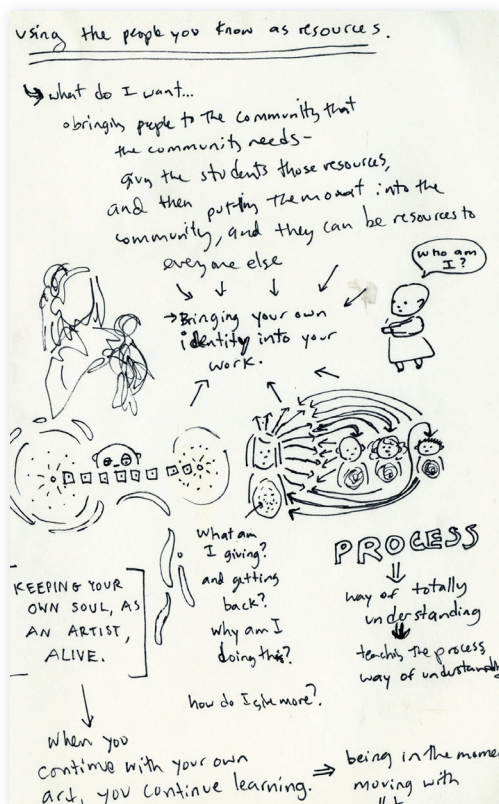 using the people you know as resources.
what do I want...
bringing people to the community that
the community needs -
give the students those resources,
and then putting them out into the
community, and they can be resources to
everyone else
who am
I?
Bringing your own
identity into your
work.
What am
I giving?
and getting
back?
why am I
doing this?
how do I give more?
PROCESS
way of totally
understanding
teaching the process,
way of understanding
KEEPING YOUR
OWN SOUL, AS
AN ARTIST,
ALIVE.
when you
continue with your own
art, you continue learning.
being in the mome
moving with